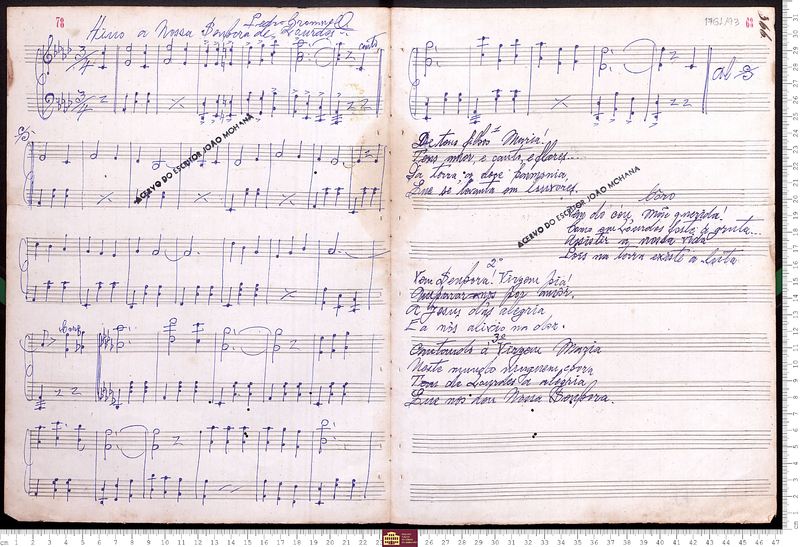 78
Hino a Nossa Senhora de Lourdes
canto
3/4
3/4
ACERVO DO ESCRITOR JOÃO MOHANA
Coro
1751/93 68
366
al S
De teus filhos Maria!
Tens amor, e canto, e flores...
Da terra a doce harmonia,
Que se levanta em louvores.
Côro
Vem do céu, Mãe querida!
Como em Lourdes foste à gruta...
Assistir a nossa vida
Pois na terra existe a luta
ACERVO DO ESCRITOR JOÃO MOHANA
2ª
Vem Senhora! Virgem pia!
Amparar-nos por amor.
A Jesus dás alegria
E a nós alivio na dor.
3ª
Cantando á Virgem Maria
Neste mundo ninguem chora
Tem de Lourdes a alegria
Que nos dou Nossa Senhora.